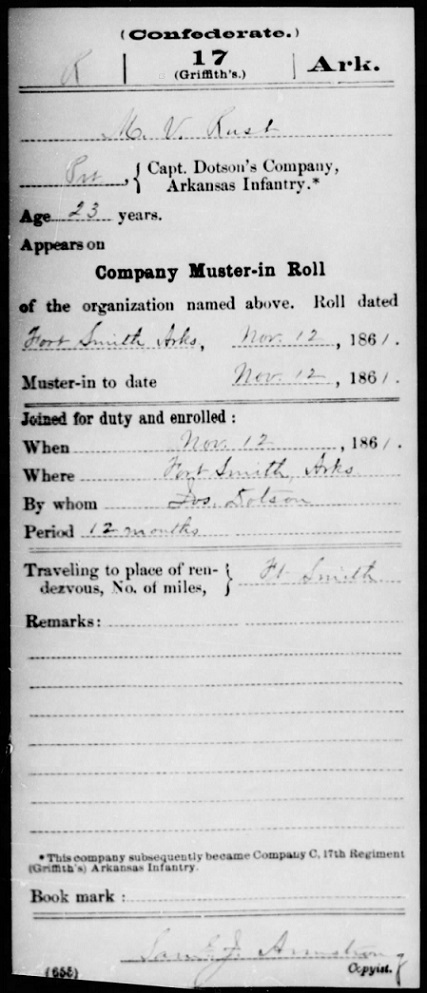 (Confederate.)
R | 17 | Ark.
(Griffith's.)
M. V. Rust
Prt, { Capt. Dotson's Company,
Arkansas Infantry.*
Age 23 years.
Appears on
Company Muster-in Roll
of the organization named above. Roll dated
Fort Smith Arks, Nov. 12, 1861.
Muster-in to date Nov. 12, 1861.
Joined for duty and enrolled:
When Nov. 12, 1861.
Where Fort Smith, Arks
By whom Jos. Dotson
Period 12 months
Traveling to place of ren- }
dezvous, No. of miles, } Ft Smith
Remarks:
*This company subsequently became Company C, 17th Regiment
(Griffith's) Arkansas Infantry.
Book mark:
Saml J. Armstrong
(656) Copyist.